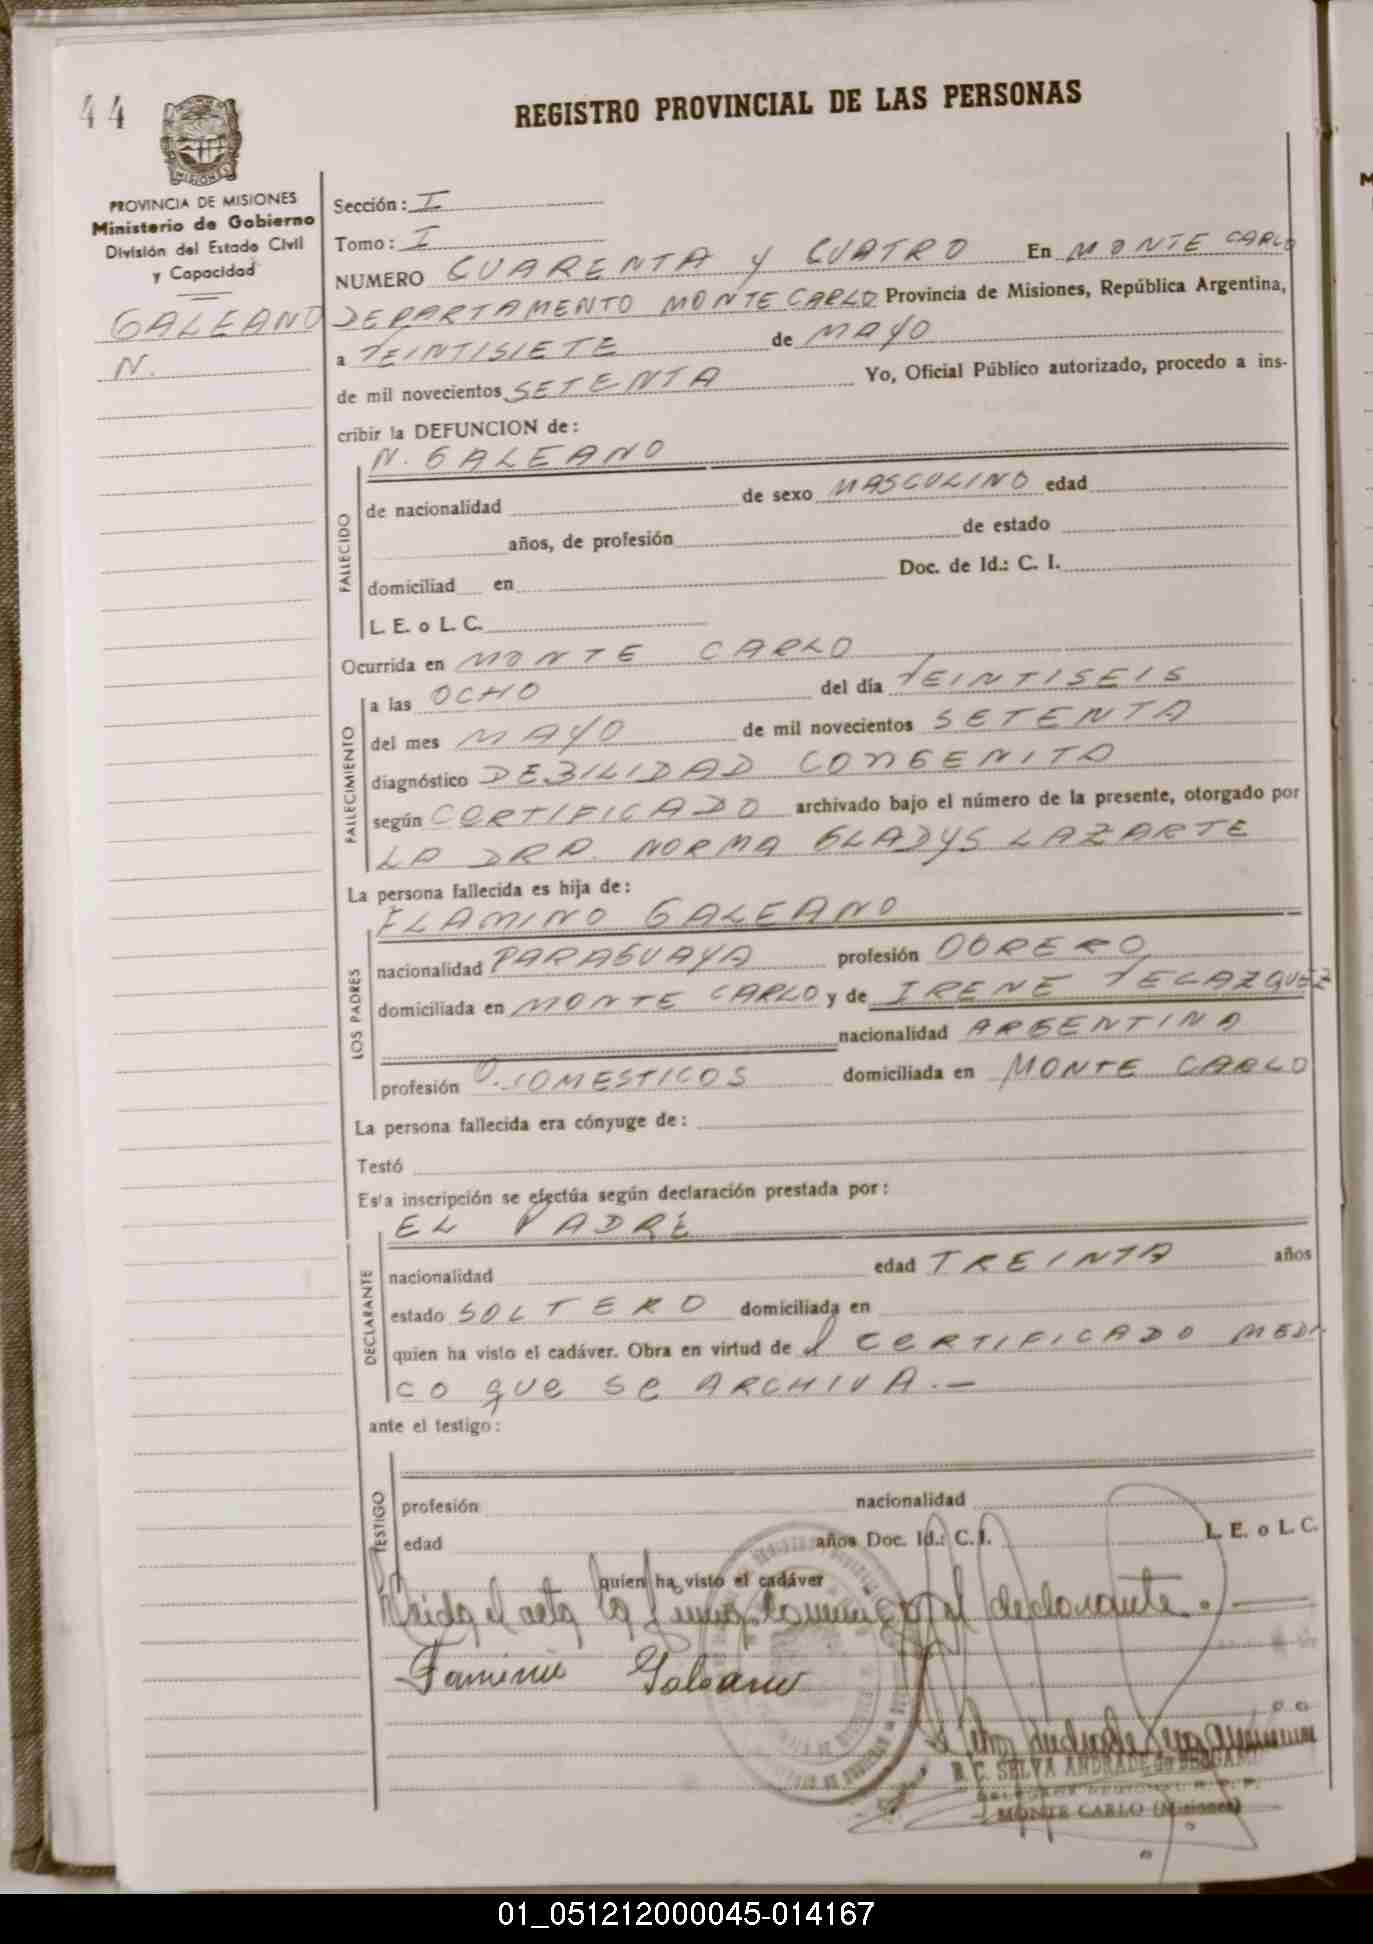 44
REGISTRO PROVINCIAL DE LAS PERSONAS
MISIONES
PROVINCIA DE MISIONES
Ministerio de Gobierno
División del Estado Civil
y Capacidad
GALEANO
N.
Sección: I
Tomo: I
NUMERO CUARENTA y CUATRO En MONTE CARLO
DEPARTAMENTO MONTE CARLO Provincia de Misiones, República Argentina,
a VEINTISIETE de MAYO
de mil novecientos SETENTA Yo, Oficial Público autorizado, procedo a ins-
cribir la DEFUNCION de:
N. GALEANO
FALLECIDO
de nacionalidad de sexo MASCULINO edad
años, de profesión de estado
domiciliad en Doc. de Id.: C. I.
L. E. o L. C.
Ocurrida en MONTE CARLO
FALLECIMIENTO
a las OCHO del día VEINTISEIS
del mes MAYO de mil novecientos SETENTA
diagnóstico DEBILIDAD CONGENITA
según CERTIFICADO archivado bajo el número de la presente, otorgado por
LA DRA. NORMA GLADYS LAZARTE
La persona fallecida es hija de:
FLAMINO GALEANO
LOS PADRES
nacionalidad PARAGUAYA profesión OBRERO
domiciliada en MONTE CARLO y de IRENE VELAZQUEZ
nacionalidad ARGENTINA
profesión Q. DOMESTICOS domiciliada en MONTE CARLO
La persona fallecida era cónyuge de:
Testó
Esta inscripción se efectúa según declaración prestada por:
EL PADRE
DECLARANTE
nacionalidad edad TREINTA años
estado SOLTERO domiciliada en
quien ha visto el cadáver. Obra en virtud de el CERTIFICADO MEDI
CO que se ARCHIVA.-
ante el testigo:
TESTIGO
profesión nacionalidad
edad años Doc. Id.: C. I. L. E. o L. C.
quien ha visto el cadáver
Leida el acta la firma conmigo el declarante.
Faminio Galeano
SELVA ANDRADE de
MONTE CARLO (Misiones)
01_051212000045-014167